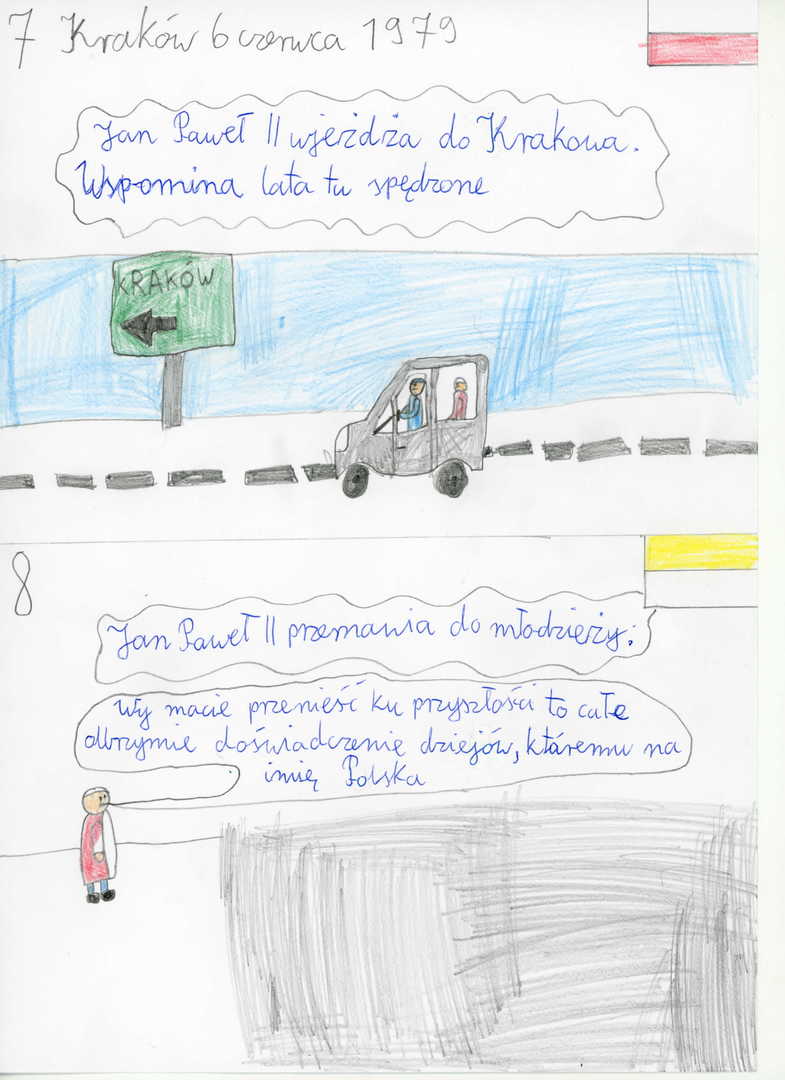 7 Kraków 6 czerwca 1979
Jan Paweł II wjeżdża do Krakowa.
Wspomina lata tu spędzone
KRAKÓW
8
Jan Paweł II przemawia do młodzieży:
Wy macie przenieść ku przyszłości to całe
olbrzymie doświadczenie dziejów, któremu na
imię Polska